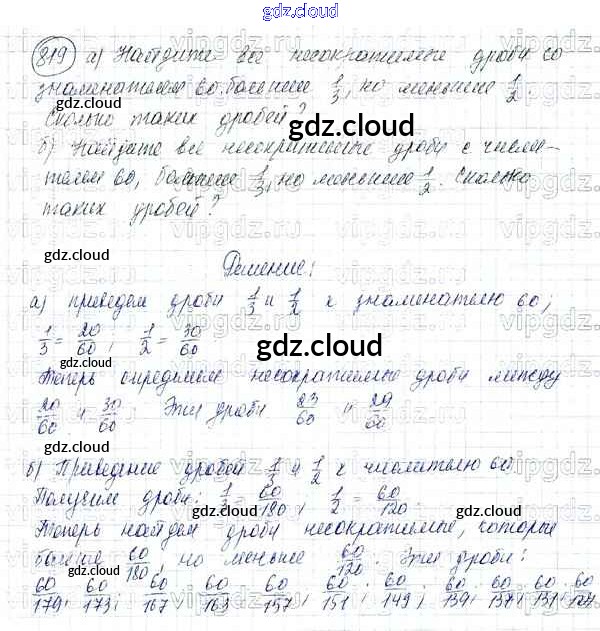 gdz.cloud
819 а) Найдите все несократимые дроби со
знаменателем 60, большие 1/3, но меньшие 1/2.
Сколько таких дробей?
gdz.cloud
б) Найдите все несократимые дроби с числи-
телем 60, большие 1/3, но меньшие 1/2. Сколько
таких дробей?
gdz.cloud
gdz.cloud
Решение:
а) приведем дроби 1/3 и 1/2 к знаменателю 60;
1/3 = 20/60; 1/2 = 30/60
gdz.cloud
gdz.cloud
Теперь определим несократимые дроби между
20/60 и 30/60. Эти дроби 23/60 и 29/60
gdz.cloud
gdz.cloud
б) Приведение дробей 1/3 и 1/2 к числителю 60.
Получим дроби: 1/3 = 60/180, 1/2 = 60/120.
gdz.cloud
Теперь найдем дроби несократимые, которые
больше 60/180, но меньше 60/120. Эти дроби:
gdz.cloud
gdz.cloud
60/179; 60/173; 60/167; 60/163; 60/157; 60/151; 60/149; 60/139; 60/137; 60/131; 60/127